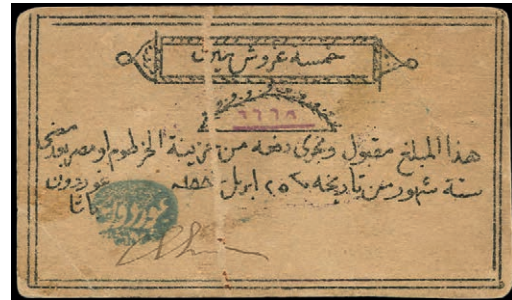 خمسه غروش
هذا المبلغ مقبول ويجرى دفعه من خزينة الخرطوم او مصر بعد مضى
ستة شهور من تاريخه ٢٥ ابريل ١٨٨٤ غوردون
باشا